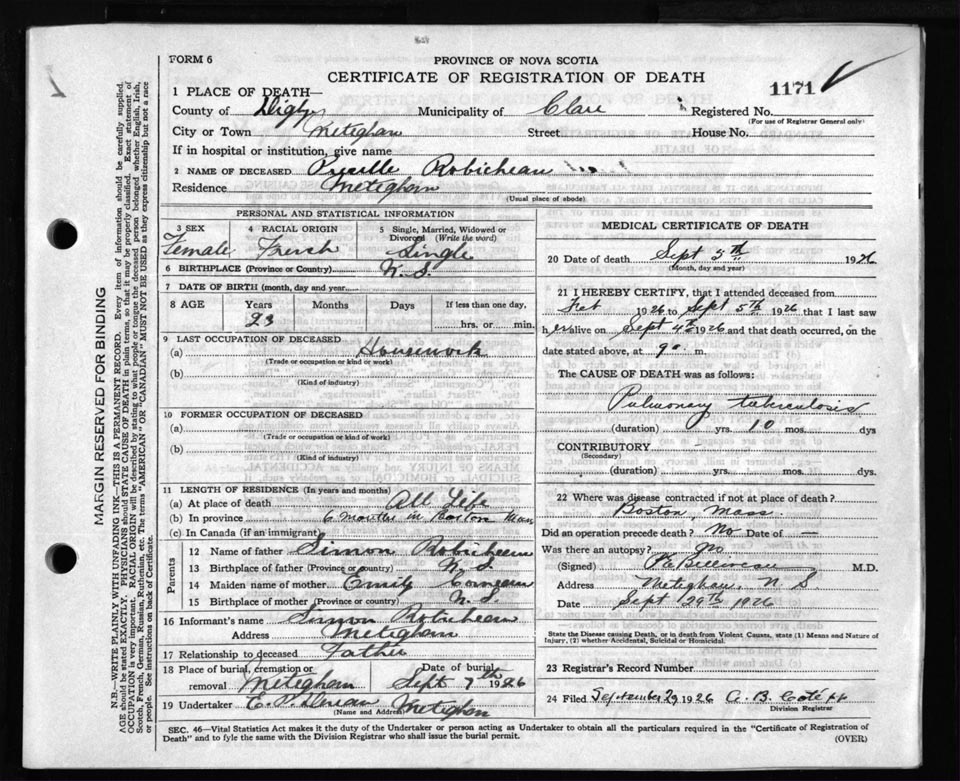 FORM 6
PROVINCE OF NOVA SCOTIA
CERTIFICATE OF REGISTRATION OF DEATH
1171
1 PLACE OF DEATH—
County of Digby Municipality of Clare Registered No.
(For use of Registrar General only)
City or Town Meteghan Street House No.
If in hospital or institution, give name
2 NAME OF DECEASED Robicheau
Residence Meteghan
(Usual place of abode)
PERSONAL AND STATISTICAL INFORMATION
3 SEX 4 RACIAL ORIGIN 5 Single, Married, Widowed or Divorced (Write the word)
Female French Single
6 BIRTHPLACE (Province or Country) N. S.
7 DATE OF BIRTH (month, day and year)
8 AGE Years Months Days If less than one day,
23 hrs. or min.
9 LAST OCCUPATION OF DECEASED
(a) Housework
(Trade or occupation or kind of work)
(b)
(Kind of industry)
10 FORMER OCCUPATION OF DECEASED
(a)
(Trade or occupation or kind of work)
(b)
(Kind of industry)
11 LENGTH OF RESIDENCE (In years and months)
(a) At place of death All Life
(b) In province 6 months in Boston Mass
(c) In Canada (if an immigrant)
Parents
12 Name of father Simon Robicheau
13 Birthplace of father (Province or country) N. S.
14 Maiden name of mother Emily Comeau
15 Birthplace of mother (Province or country) N. S.
16 Informant's name Simon Robicheau
Address Meteghan
17 Relationship to deceased Father
18 Place of burial, cremation or removal Meteghan Date of burial Sept 7th 1926
19 Undertaker E. P.
(Name and Address) Meteghan
MEDICAL CERTIFICATE OF DEATH
20 Date of death Sept 5th 1926
(Month, day and year)
21 I HEREBY CERTIFY, that I attended deceased from
1926 to Sept 5th 1926 that I last saw
h er alive on Sept 4th 1926 and that death occurred, on the
date stated above, at 9 m.
The CAUSE OF DEATH was as follows:
Pulmonary tuberculosis
(duration) yrs. 10 mos. dys
CONTRIBUTORY
(Secondary)
(duration) yrs. mos. dys.
22 Where was disease contracted if not at place of death?
Boston, Mass.
Did an operation precede death? No Date of —
Was there an autopsy? No
(Signed) M.D.
Address Meteghan, N. S
Date Sept 29th 1926
State the Disease causing Death, or in death from Violent Causes, state (1) Means and Nature of
Injury, (?) whether Accidental, Suicidal or Homicidal.
23 Registrar's Record Number
24 Filed September 29 1926 A. B.
Division Registrar
SEC. 46—Vital Statistics Act makes it the duty of the Undertaker or person acting as Undertaker to obtain all the particulars required in the "Certificate of Registration of
Death" and to fyle the same with the Division Registrar who shall issue the burial permit. (OVER)
MARGIN RESERVED FOR BINDING
N.B.—WRITE PLAINLY, WITH UNFADING INK—THIS IS A PERMANENT RECORD. Every item of information should be carefully supplied.
AGE should be stated EXACTLY. PHYSICIANS should STATE CAUSE OF DEATH in plain terms, so that it may be properly classified. Exact statement of
OCCUPATION is very important. RACIAL ORIGIN will be described by stating to what people or tongue the deceased person belonged whether English, Irish,
Scotch, French, German, Russian, Ruthenian, etc. The terms "AMERICAN" or "CANADIAN" MUST NOT BE USED as they express citizenship but not a race
or people. See instructions on back of Certificate.